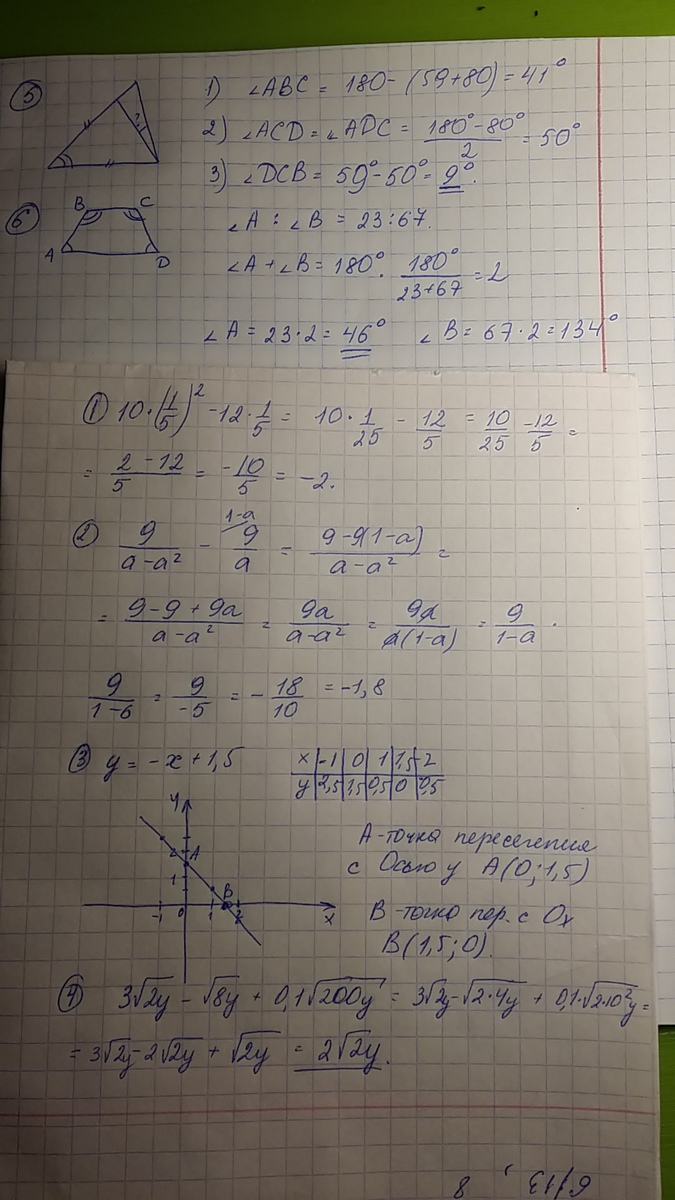 5
1) ∠ABC = 180 - (59+80) = 41°
2) ∠ACD = ∠ADC = (180° - 80°)/2 = 50°
3) ∠DCB = 59° - 50° = 9°.
6
B C
A D
∠A : ∠B = 23:67.
∠A + ∠B = 180°. 180°/(23+67) = 2
∠A = 23·2 = 46° ∠B = 67·2 = 134°
1 10·(1/5)² - 12·1/5 = 10·1/25 - 12/5 = 10/25 - 12/5 =
= (2 - 12)/5 = -10/5 = -2.
2 9/(a-a²) - 9/a 1-a = (9-9(1-a))/(a-a²) =
= (9-9+9a)/(a-a²) = 9a/(a-a²) = 9a/(a(1-a)) = 9/(1-a).
9/(1-6) = 9/(-5) = -18/10 = -1,8
3 y = -x + 1,5
x -1 0 1 1,5 2
y 2,5 1,5 0,5 0 0,5
y
2 A
1
-1 0 1 B 2 x
A-точка пересечения
с Осью y A(0;1,5)
B-точка пер. с Ox
B(1,5;0).
4 3√2y - √8y + 0,1√200y = 3√2y - √2·4y + 0,1·√2·10²y =
= 3√2y - 2√2y + √2y = 2√2y.